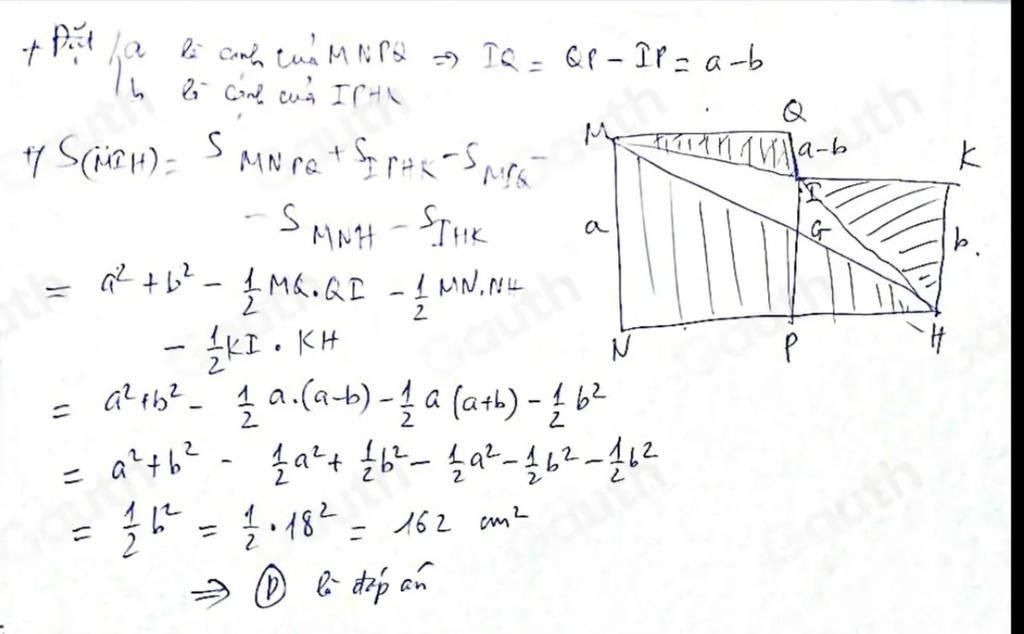 + Đặt a là cạnh của MNPQ ⇒ IQ = QP − IP = a − b
b là cạnh của IPHK
+/ S(MIH) = S MNPQ + S IPHK − S MIQ −
− S MNH − S IHK
= a² + b² − 1/2 MQ.QI − 1/2 MN.NH
− 1/2 KI . KH
= a² + b² − 1/2 a.(a−b) − 1/2 a (a+b) − 1/2 b²
= a² + b² − 1/2 a² + 1/2 b² − 1/2 a² − 1/2 b² − 1/2 b²
= 1/2 b² = 1/2 . 18² = 162 cm²
⇒ (D) là đáp án
Q
M
a−b
K
I
a
G
b.
N
P
H
Gauth